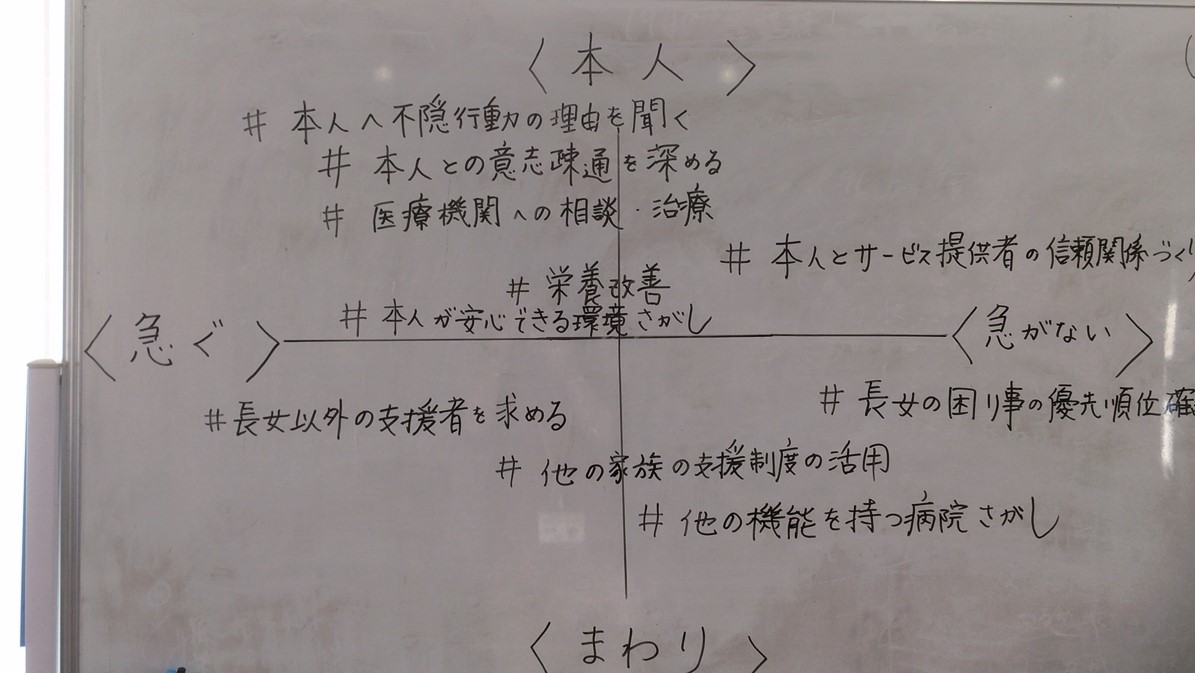 〈本人〉
# 本人へ不隠行動の理由を聞く
# 本人との意志疎通を深める
# 医療機関への相談・治療
# 本人とサービス提供者の信頼関係づくり
# 栄養改善
# 本人が安心できる環境さがし
〈急ぐ〉
〈急がない〉
# 長女の困り事の優先順位確
# 長女以外の支援者を求める
# 他の家族の支援制度の活用
# 他の機能を持つ病院さがし
〈まわり〉